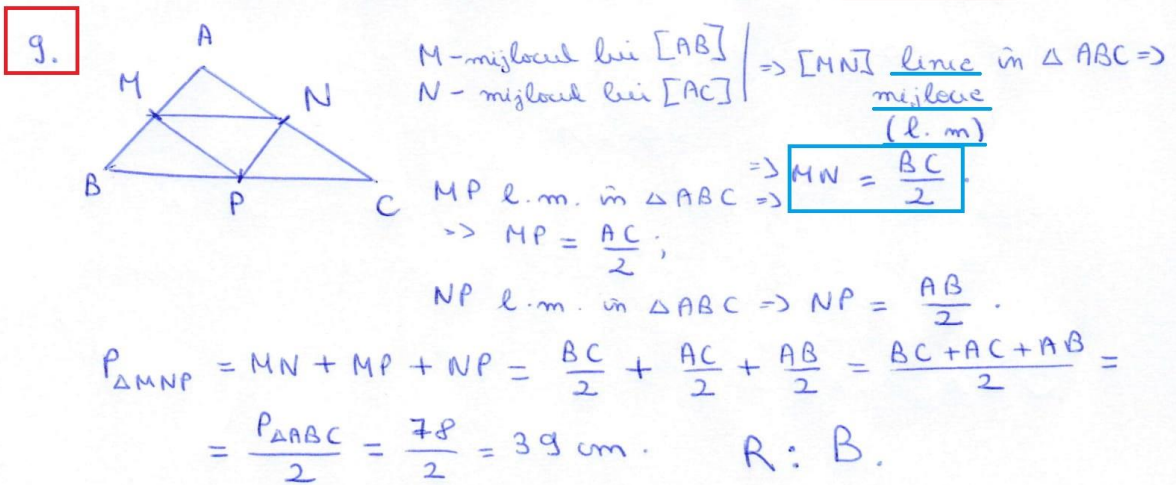 9.
A
M
N
B
P
C
M-mijlocul lui [AB]
N - mijlocul lui [AC]
=> [MN] linie în Δ ABC =>
mijlocie
(l. m)
=> MN = BC/2.
MP l.m. în Δ ABC =>
=> MP = AC/2;
NP l.m. în Δ ABC => NP = AB/2.
PΔMNP = MN + MP + NP = BC/2 + AC/2 + AB/2 = (BC+AC+AB)/2 =
= PΔABC/2 = 78/2 = 39 cm. R: B.